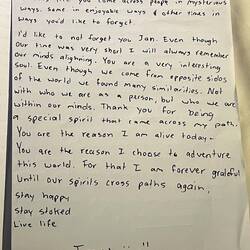 you come across people in mysterious
ways. some in enjoyable ways & other times in
ways you'd like to forget.
I'd like to not forget you Jan. Even though
our time was very short I will always remember
our minds alighning. You are a very interesting
soul. Even though we come from opposite sides
of the world we found many similarities. Not
with who we are as a person, but who we are
within our minds. Thank you for being
a special spirit that came across my path.
You are the reason I am alive today-
You are the reason I choose to adventure
this world. For that I am forever grateful
Until our spirits cross paths again,
stay happy
stay stoked
Live life